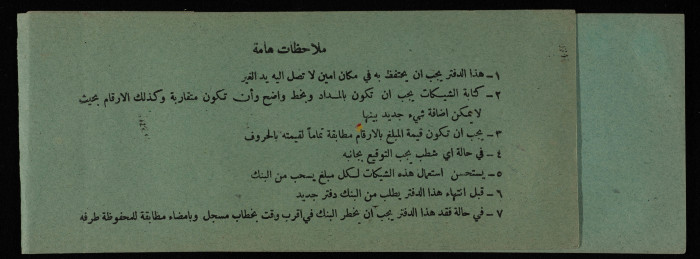 ملاحظات هامة
١ــ هذا الدفتر يجب ان يحتفظ به في مكان امين لا تصل اليه يد الغير
٢ــ كتابة الشيكات يجب ان تكون بالمداد وبخط واضح وأن تكون متقاربة وكذلك الارقام بحيث
لا يمكن اضافة شيء جديد بينها
٣ــ يجب ان تكون قيمة المبلغ بالارقام مطابقة تماماً لقيمته بالحروف
٤ــ في حالة اي شطب يجب التوقيع بجانبه
٥ــ يستحسن استعمال هذه الشيكات لكل مبلغ يسحب من البنك
٦ــ قبل انتهاء هذا الدفتر يطلب من البنك دفتر جديد
٧ــ في حالة فقد هذا الدفتر يجب أن يخطر البنك في اقرب وقت بخطاب مسجل وبامضاء مطابقة للمحفوظة طرفه